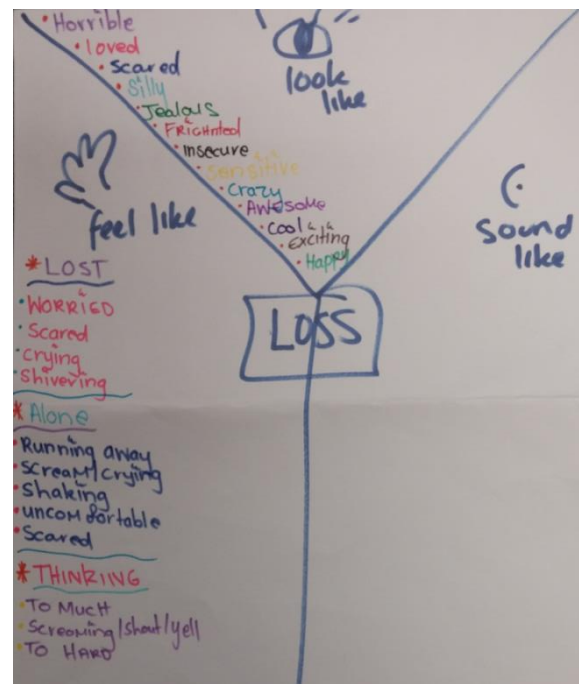 Horrible
loved
Scared
Silly
Jealous
FRIGHnted
insecure
Sensitive
Crazy
AWESOME
Cool
Exciting
Happy
look
like
feel like
Sound
like
LOSS
* LOST
WORRiED
Scared
crying
Shivering
* Alone
Running away
SCREAM/crying
Shaking
uncomfortable
Scared
* THINKIING
TO MUCH
Screaming/shout/yell
TO HARD